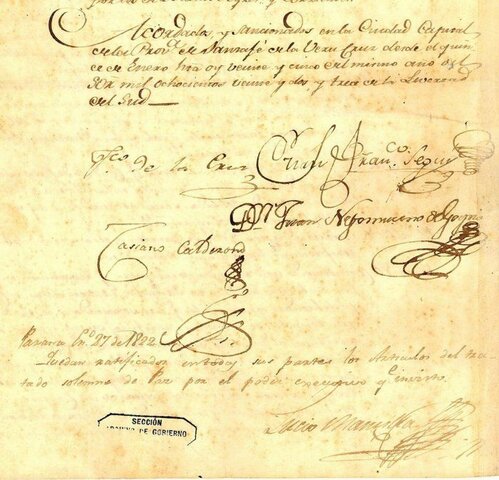 Acordados, y sancionados en la Ciudad Capital
de la Prov.ª de Santafé de la Vera Cruz desde el quin
ce de Enero hta oy veinte y cinco del mismo año del
Sor mil ochocientos veinte y dos, y trece de la Livertad
del Sud
Fco. de la Cruz Juan Franco. Segui
Dn. Juan Nepomuceno de Goytia
Casiano Calderond
Paraná En.o 27 de 1822
Quedan ratificados en todas sus partes los Articulos del tra
tado solemne de Paz por el poder executivo q. Envisto.
Lucio Mansilla
SECCIÓN
DE GOBIERNO